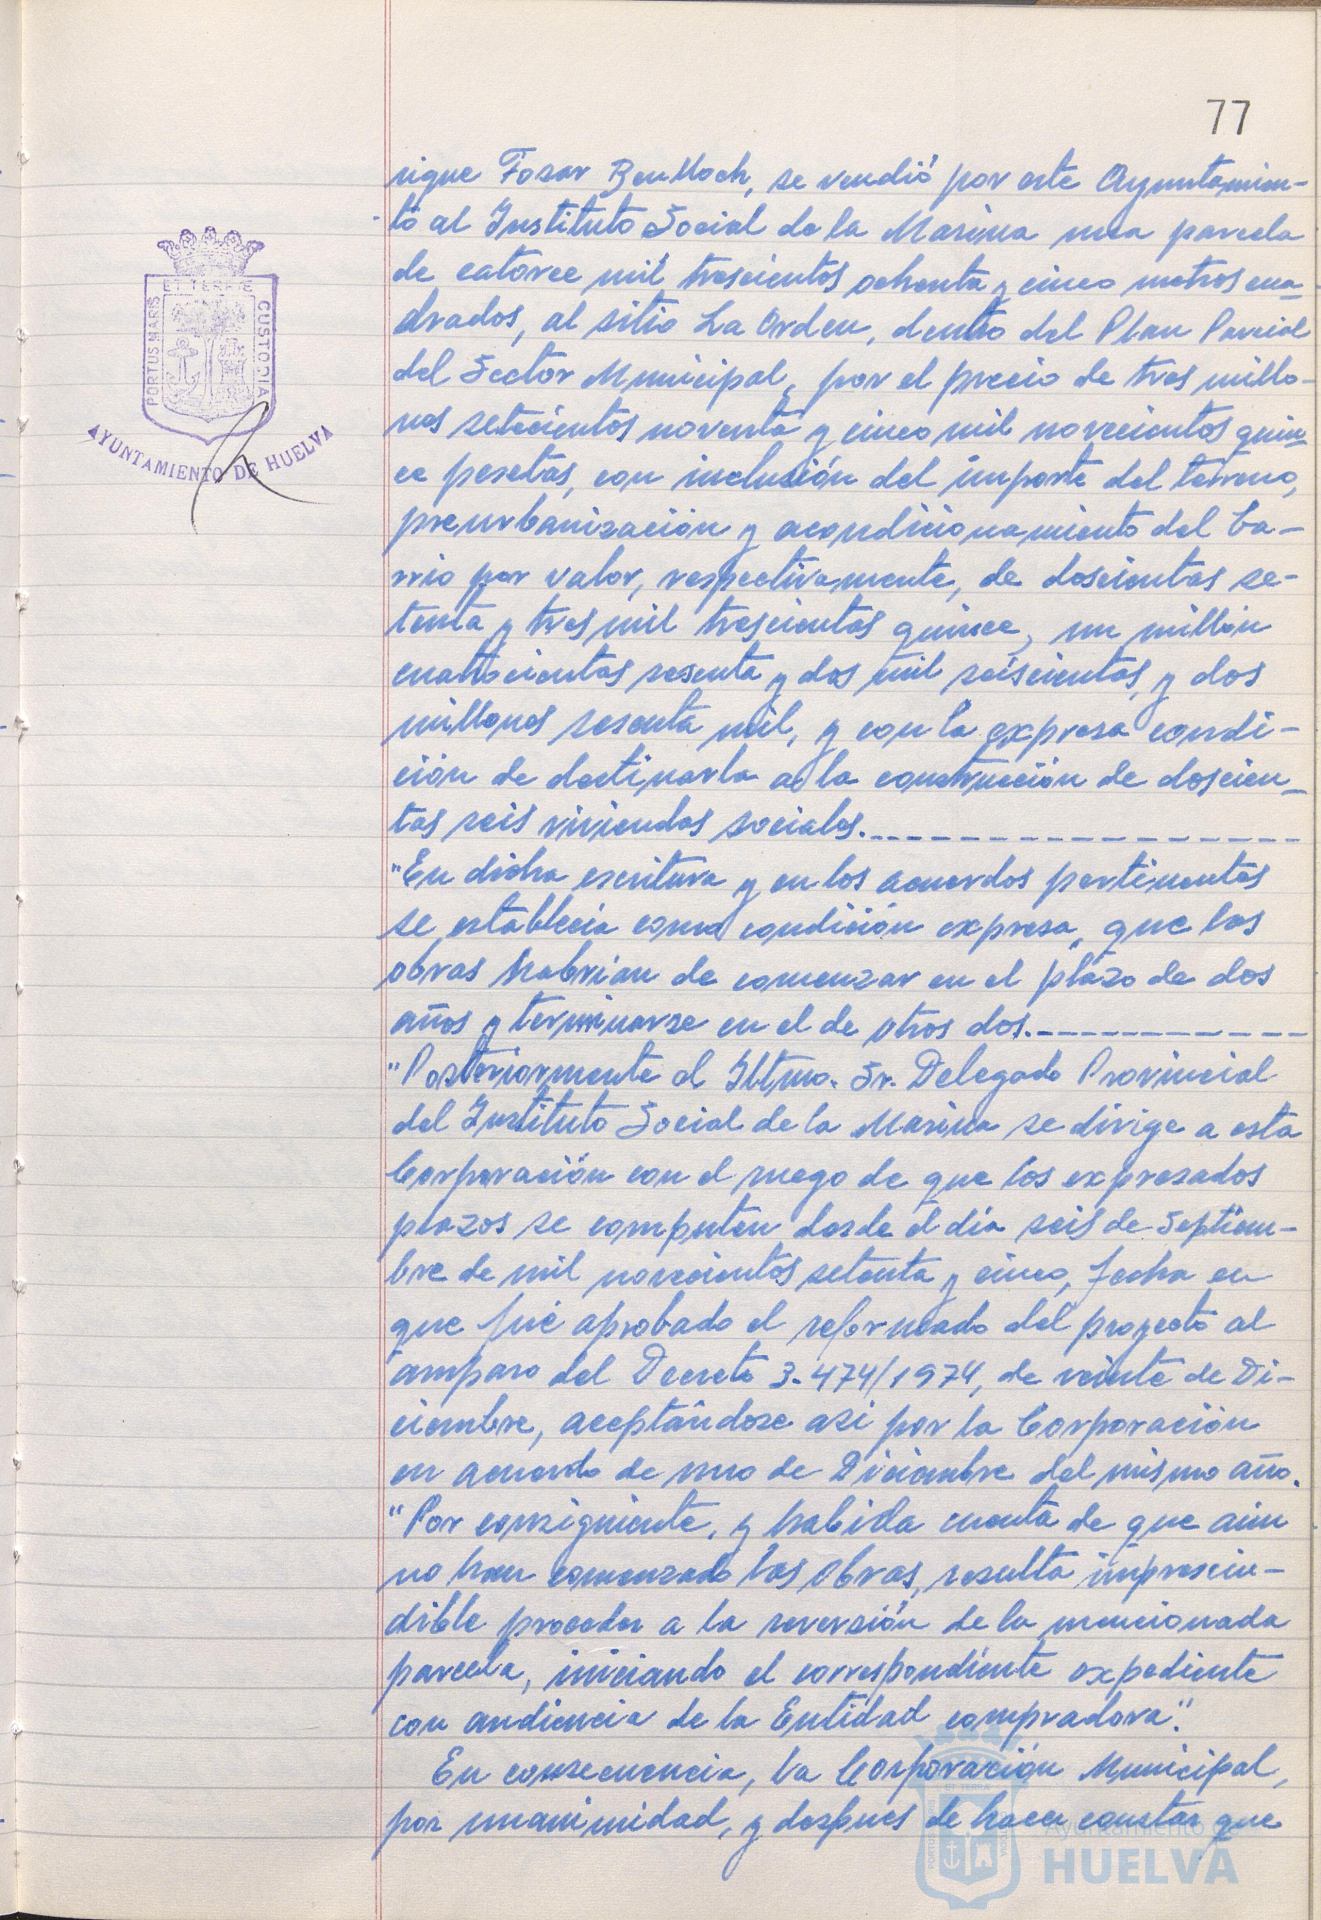 77
rique Fosar Benlloch, se vendió por este Ayuntamien-
to al Instituto Social de la Marina una parcela
de catorce mil trescientos ochenta y cinco metros cua-
drados, al sitio La Orden, dentro del Plan Parcial
del Sector Municipal, por el precio de tres millo-
nes setecientos noventa y cinco mil novecientos quin
ce pesetas, con inclusión del importe del terreno,
preurbanización y acondicionamiento del ba-
rrio por valor, respectivamente, de doscientas se-
tenta y tres mil trescientas quince, un millón
cuatrocientas sesenta y dos mil seiscientas, y dos
millones sesenta mil, y con la expresa condi-
ción de destinarla a la construcción de doscien-
tas seis viviendas sociales.
"En dicha escritura y en los acuerdos pertinentes
se establecía como condición expresa, que las
obras habrían de comenzar en el plazo de dos
años y terminarse en el de otros dos.
"Posteriormente el Iltmo. Sr. Delegado Provincial
del Instituto Social de la Marina se dirige a esta
Corporación con el ruego de que los expresados
plazos se computen desde el día seis de Septiem-
bre de mil novecientos setenta y cinco, fecha en
que fué aprobado el reformado del proyecto al
amparo del Decreto 3.474/1974, de veinte de Di-
ciembre, aceptándose así por la Corporación
en acuerdo de uno de Diciembre del mismo año.
"Por consiguiente, y habida cuenta de que aún
no han comenzado las obras, resulta imprescin-
dible proceder a la reversión de la mencionada
parcela, iniciando el correspondiente expediente
con audiencia de la Entidad compradora".
En consecuencia, la Corporación Municipal,
por unanimidad, y despues de hacer constar que
PORTUS MARIS
ET TERRÆ
CUSTODIA
AYUNTAMIENTO DE HUELVA
Ayuntamiento de
HUELVA